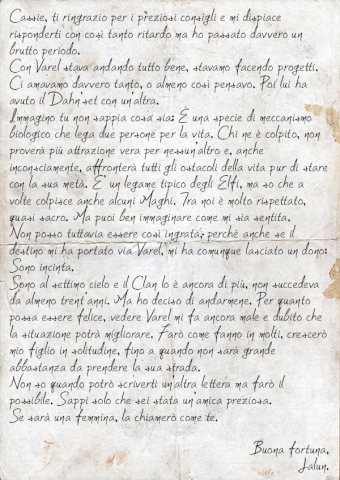 Cassie, ti ringrazio per i preziosi consigli e mi dispiace
risponderti con così tanto ritardo ma ho passato davvero un
brutto periodo.
Con Varel stava andando tutto bene, stavamo facendo progetti.
Ci amavamo davvero tanto, o almeno così pensavo. Poi lui ha
avuto il Dahn'set con un'altra.
Immagino tu non sappia cosa sia: È una specie di meccanismo
biologico che lega due persone per la vita. Chi ne è colpito, non
proverà più attrazione vera per nessun'altro e, anche
inconsciamente, affronterà tutti gli ostacoli della vita pur di stare
con la sua metà. E' un legame tipico degli Elfi, ma so che a
volte colpisce anche alcuni Maghi. Tra noi è molto rispettato,
quasi sacro. Ma puoi ben immaginare come mi sia sentita.
Non posso tuttavia essere così ingrata: perchè anche se il
destino mi ha portato via Varel, mi ha comunque lasciato un dono:
Sono incinta.
Sono al settimo cielo e il Clan lo è ancora di più, non succedeva
da almeno trent'anni. Ma ho deciso di andarmene. Per quanto
possa essere felice, vedere Varel mi fa ancora male e dubito che
la situazione potrà migliorare. Farò come fanno in molti, crescerò
mio figlio in solitudine, fino a quando non sarà grande
abbastanza da prendere la sua strada.
Non so quando potrò scriverti un'altra lettera ma farò il
possibile. Sappi solo che sei stata un'amica preziosa.
Se sarà una femmina, la chiamerò come te.
Buona fortuna,
Jalun.